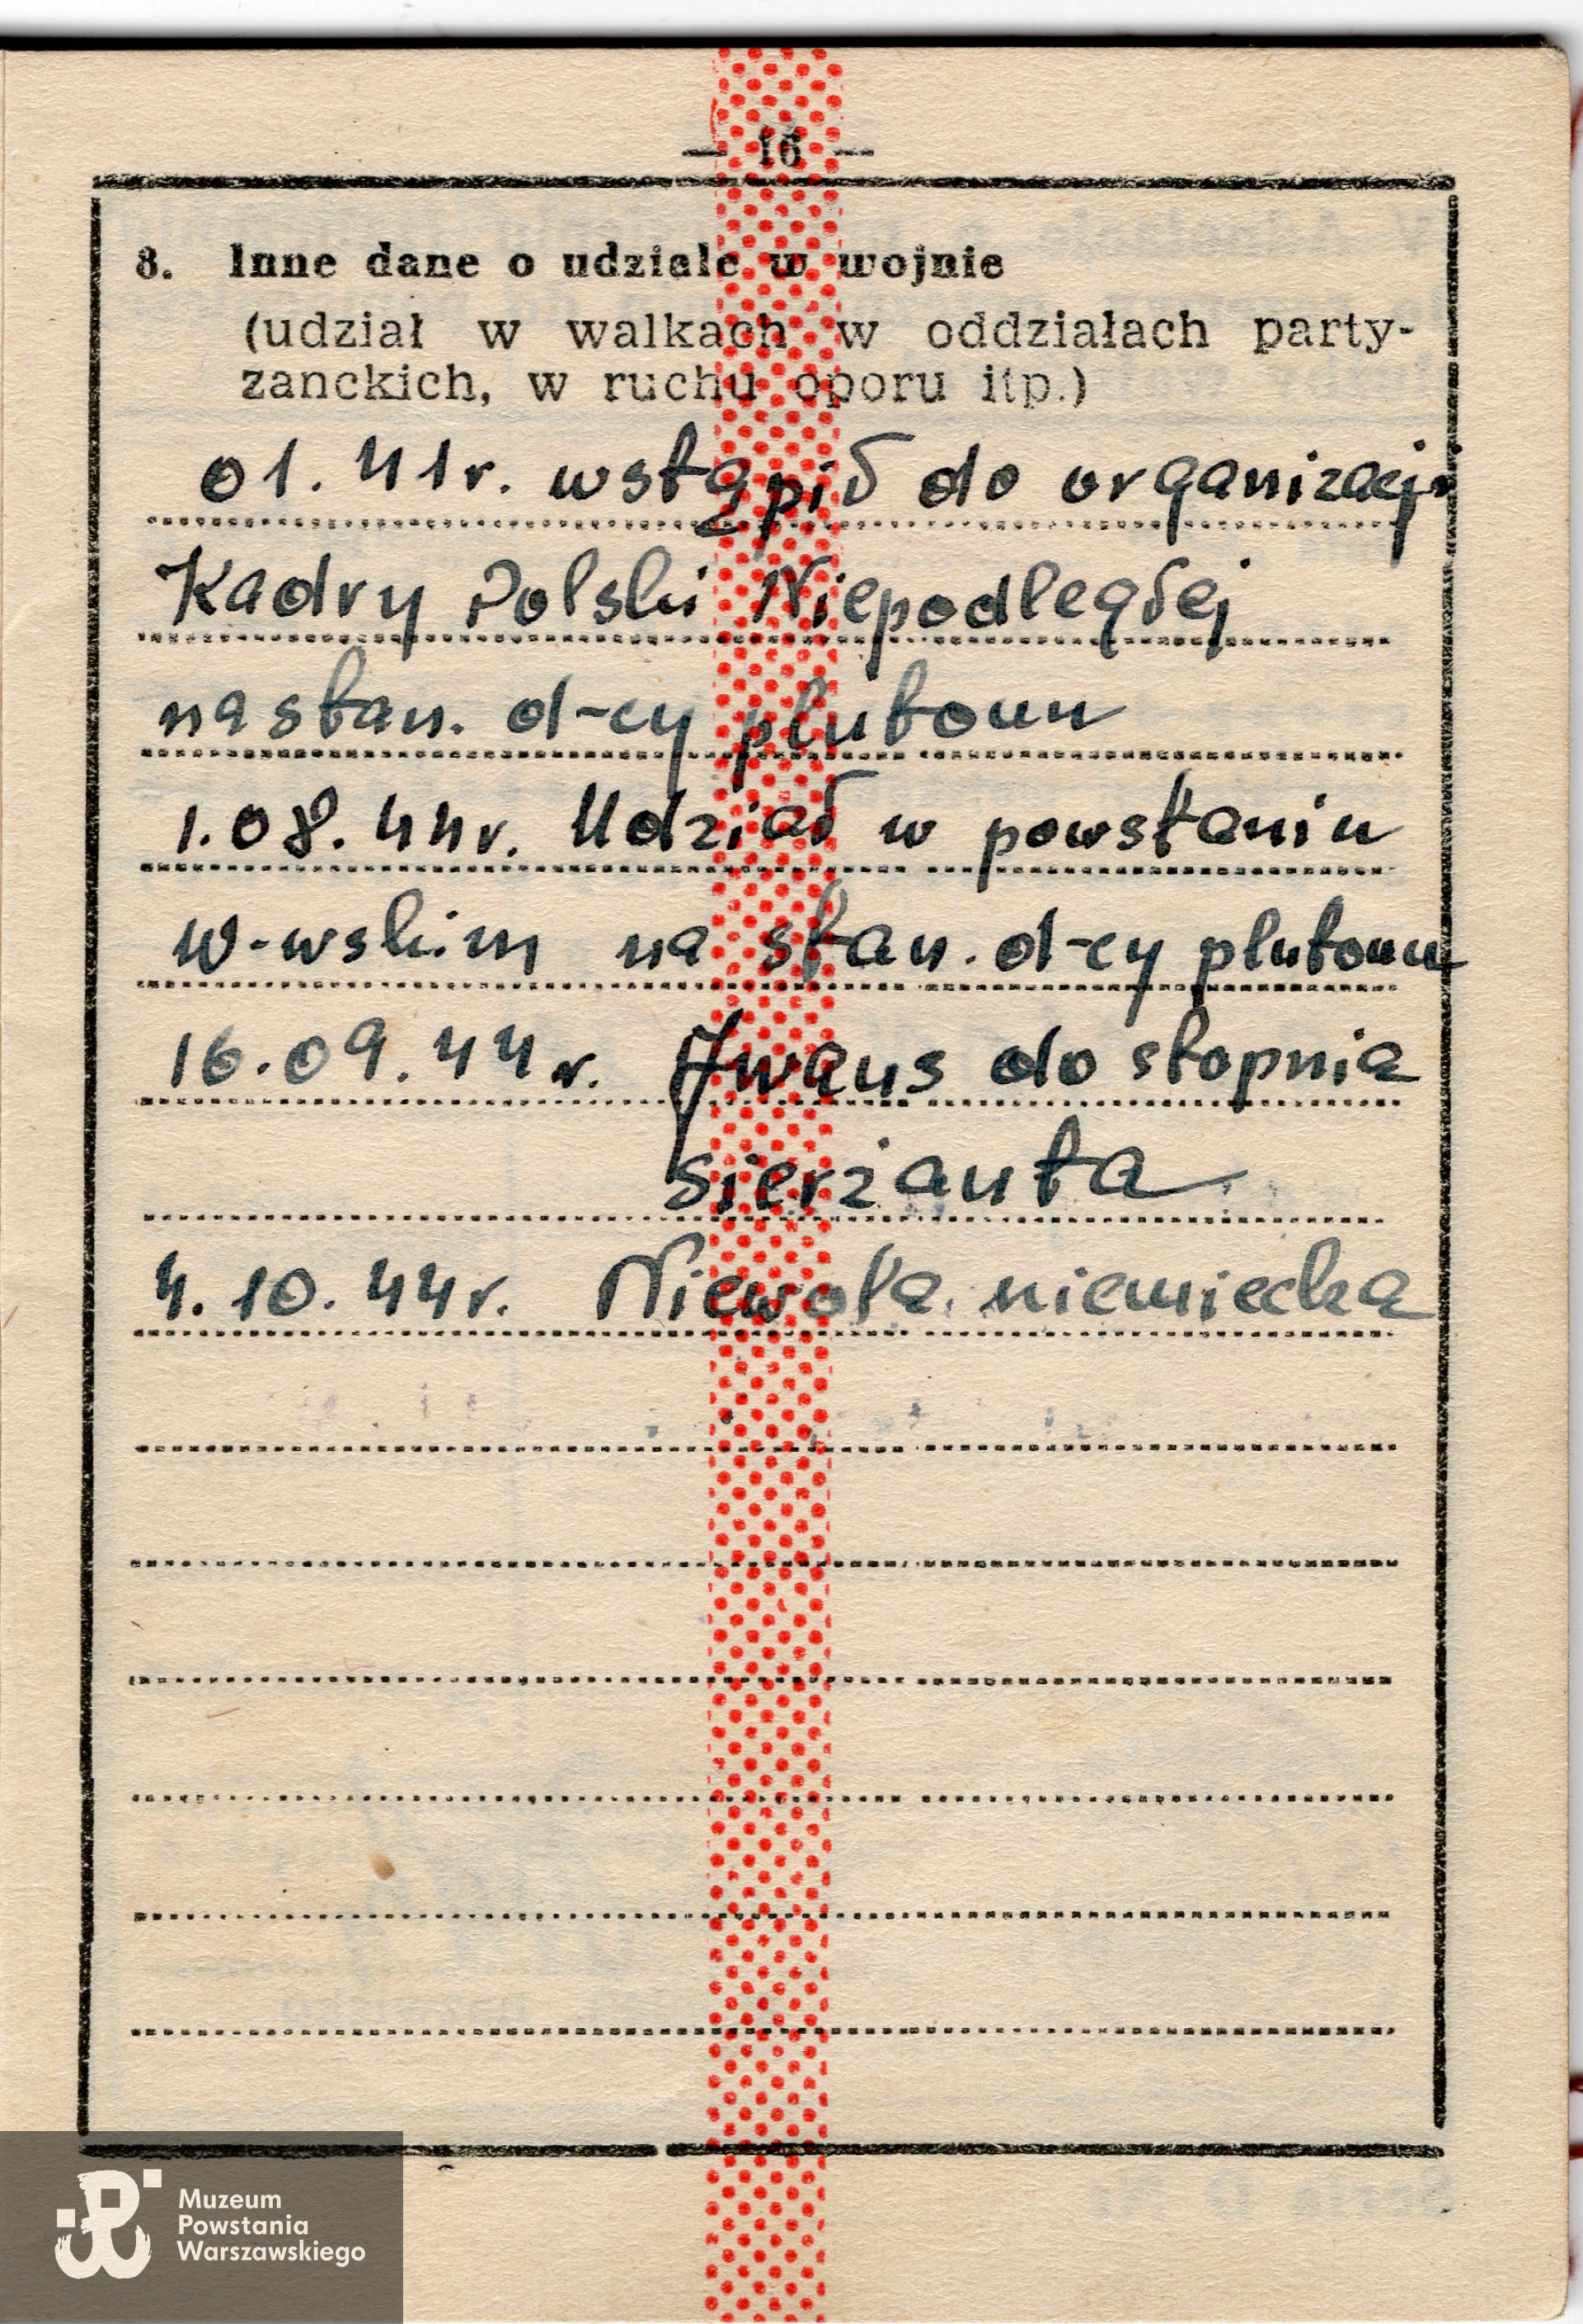 — 16 —
8. Inne dane o udziale w wojnie
(udział w walkach w oddziałach party-
zanckich, w ruchu oporu itp.)
01. 41r. wstąpił do organizacji
Kadry Polski Niepodległej
na stan. d-cy plutonu
1.08.44r. Udział w powstaniu
W-wskim na stan. d-cy plutonu
16.09.44r. Awans do stopnia
sierżanta
4.10.44r. Niewola niemiecka
Muzeum
Powstania
Warszawskiego